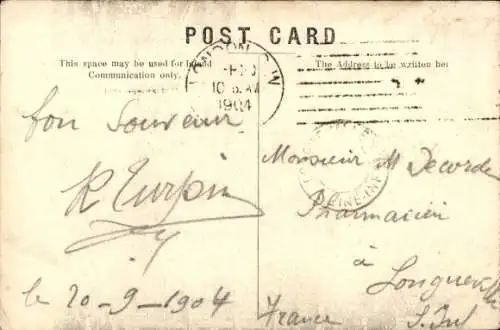 POST CARD
This space may be used for Inland
Communication only.
The Address to be written here
LONDON S.W
10
1904
bon Souvenir
R Turpin
le 20-9-1904
Monsieur M Decorde
Pharmacien
à
Longueville
France
S. Inf